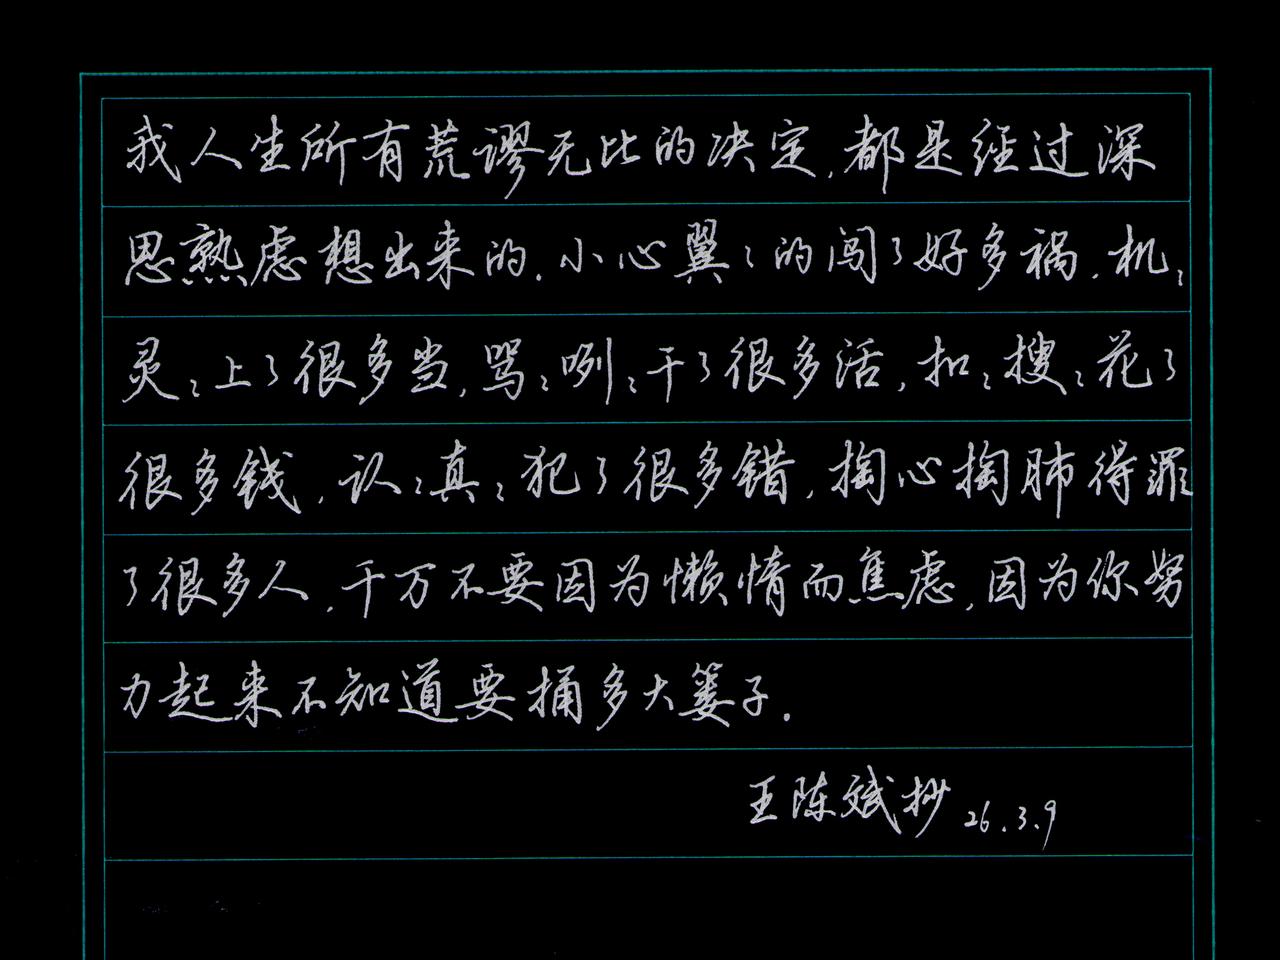 我人生所有荒谬无比的决定,都是经过深
思熟虑想出来的.小心翼々的闯了好多祸.机々
灵々上了很多当,骂々咧々干了很多活,扣々搜々花了
很多钱,认々真々犯了很多错,掏心掏肺得罪
了很多人,千万不要因为懒惰而焦虑,因为你努
力起来不知道要捅多大篓子.
王陈斌抄 26.3.9